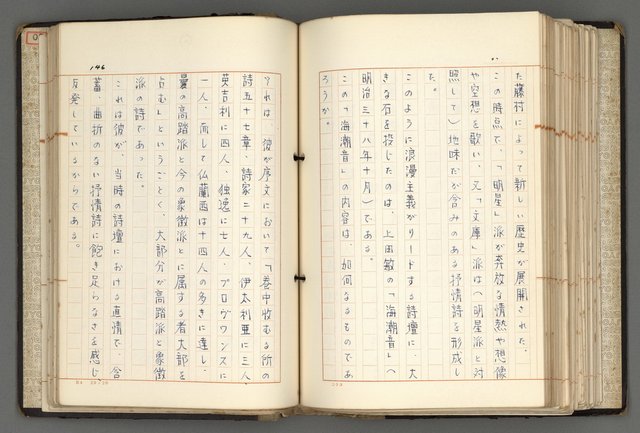 た藤村によって新しい歴史が展開された。
この時点で、「明星」派が奔放な情熱や想像
や空想を歌い、又「文庫」派は(明星派と対
照して)地味だが含みのある抒情詩を形成し
た。
このように浪漫主義がリードする詩壇に、大
きな石を投じたのは、上田敏の「海潮音」(
明治三十八年十月)である。
この「海潮音」の内容は、如何なるものであ
ろうか。
146
それは、彼が序文において「巻中收むる所の
詩五十七章、詩家二十九人、伊太利亜に三人、
英吉利に四人、独逸に七人、プロヴァンスに
一人、而して仏蘭西は十四人の多きに達し、
曩の高踏派と今の象徴派とに属する者大部を
占む」というごとく、大部分が高踏派と象徴
派の詩であった。
これは彼が、当時の詩壇における直情で、含
蓄、曲折のない抒情詩に飽き足らなさを感じ
反発しているからである。